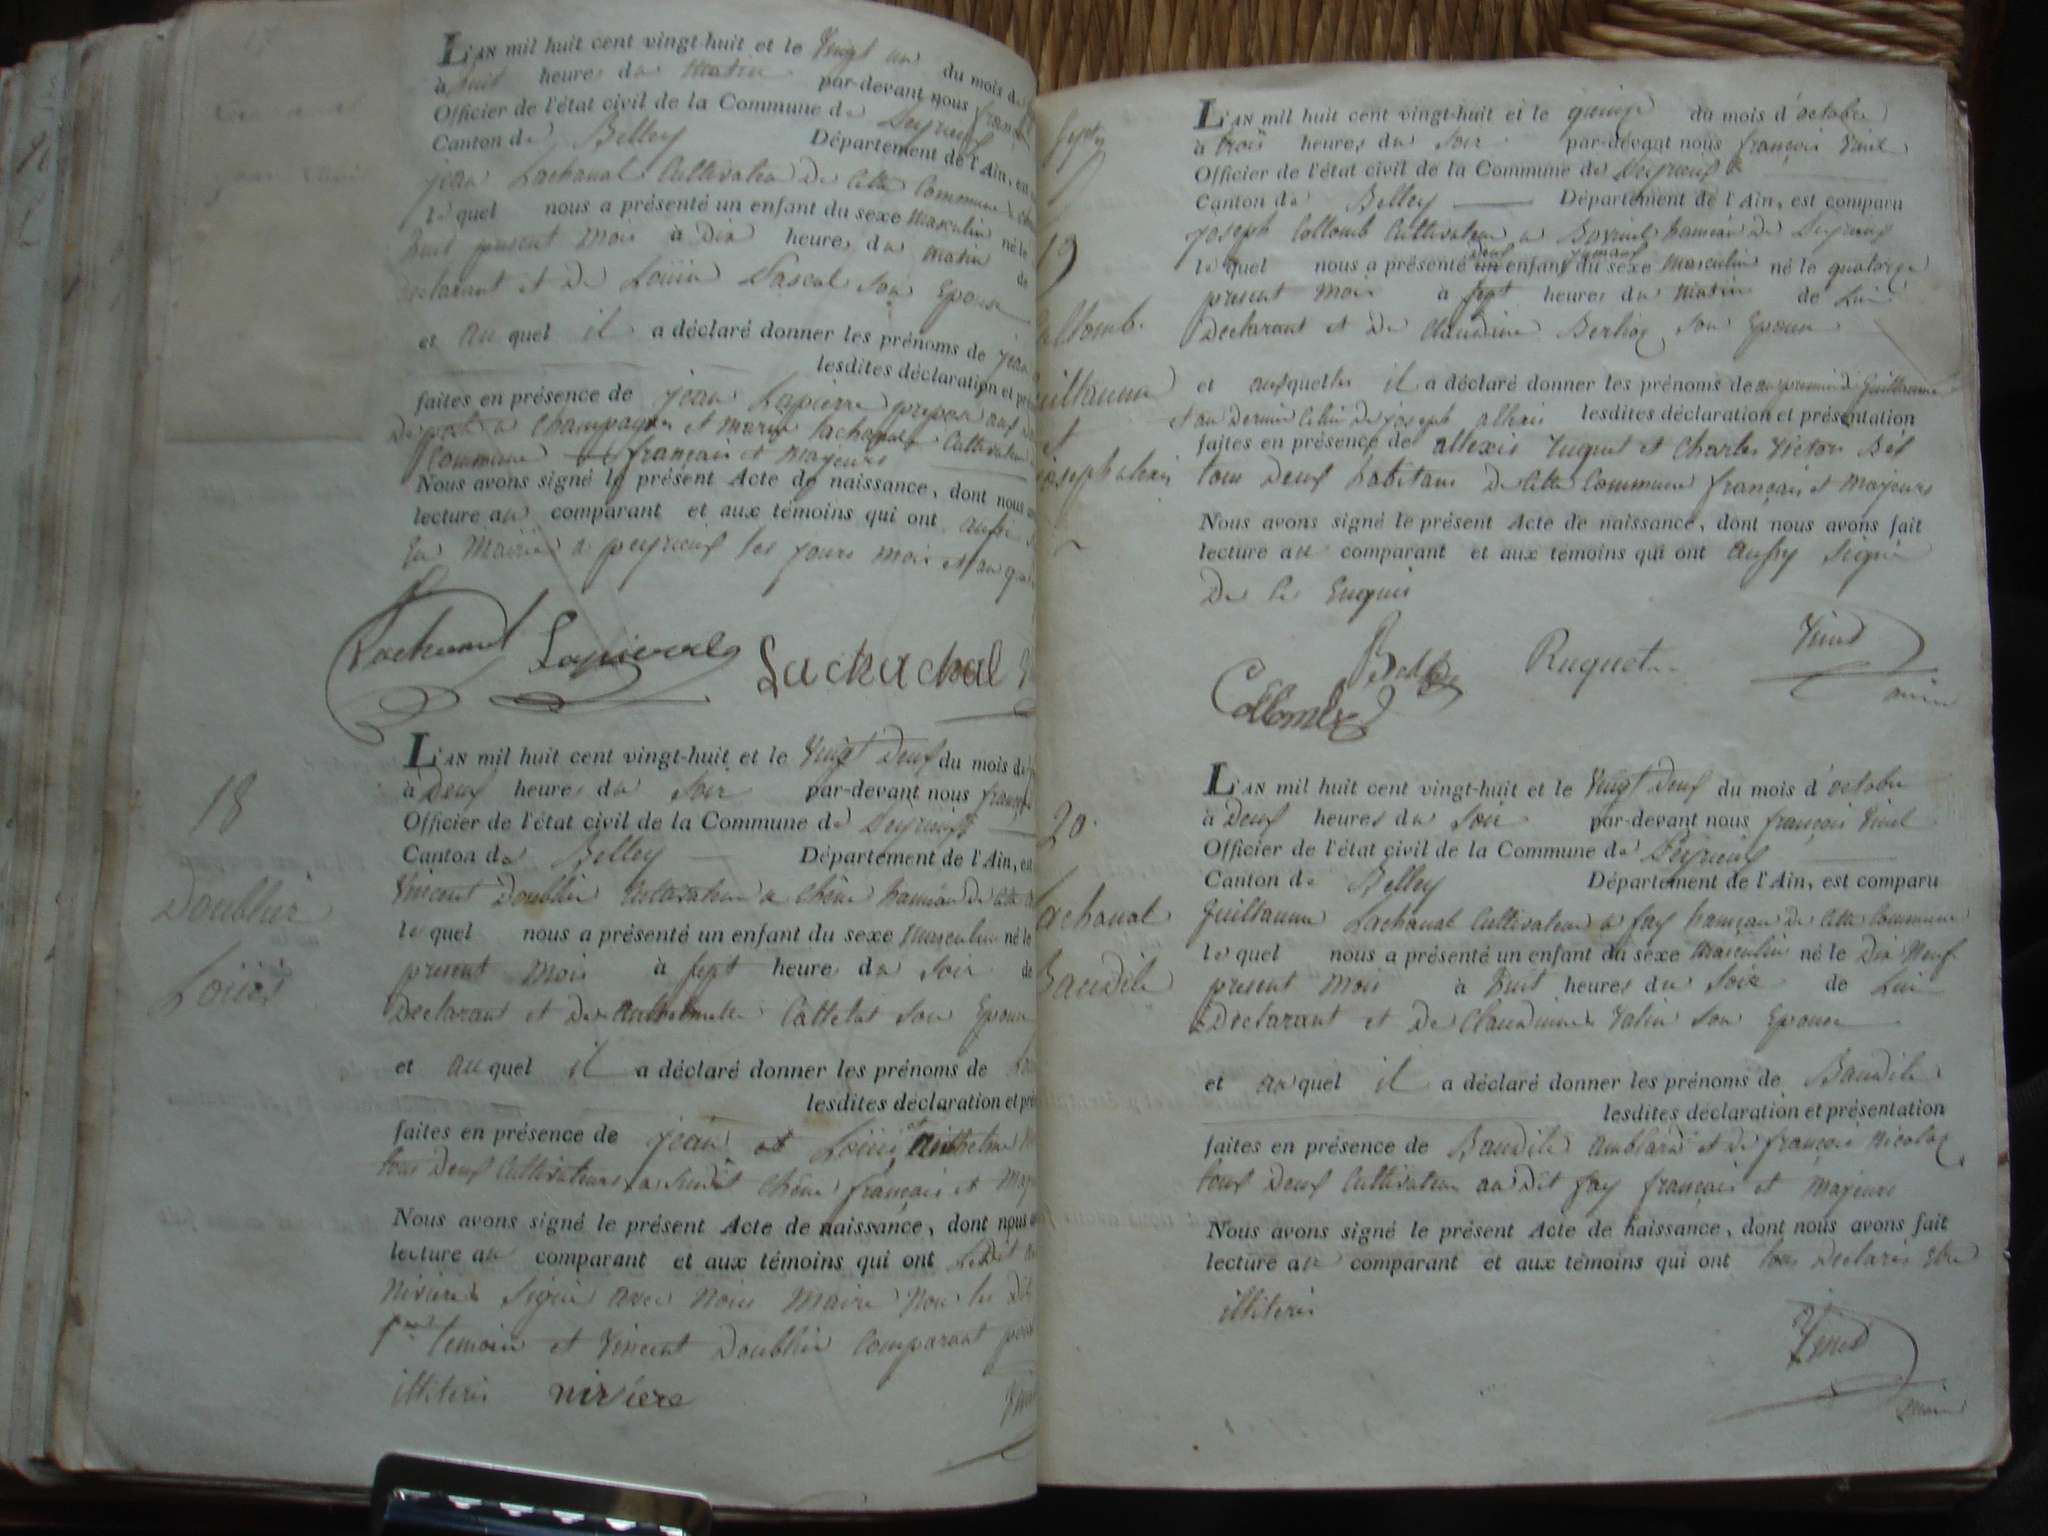 L'AN mil huit cent vingt-huit et le Vingt un du mois de
à huit heures du matin par-devant nous
Officier de l'état civil de la Commune de Peyrieux
Canton de Belley Département de l'Ain, est
jean Lachanal Cultivateur De Cette Commune
le quel nous a présenté un enfant du sexe masculin né le
huit present mois à Dix heures du matin de
Declarant et De Louise Pascal son Epouse
et au quel il a déclaré donner les prénoms de jean
lesdites déclaration et
faites en présence de jean Lapierre
a Champagne et Lachanal Cultivateur
Commune français et majeurs
Nous avons signé le présent Acte de naissance, dont nous
lecture au comparant et aux témoins qui ont aussi
En Mairie a peyrieux les jours mois et an
Lachanal Lapierre Lachachal
18
Doublier
Loüis
L'AN mil huit cent vingt-huit et le Vingt Deux du mois de
à Deux heures du Soir par-devant nous françois
Officier de l'état civil de la Commune de Peyrieux
Canton de Belley Département de l'Ain, est
Vincent Doublier Cultivateur a Chêne hameau De Cette
le quel nous a présenté un enfant du sexe masculin né le
present mois à Sept heures du Soir de
Declarant et De anthelmette Cattelat son Epouse
et au quel il a déclaré donner les prénoms de
lesdites déclaration et
faites en présence de jean et Loüis et anthelme
tous Deux Cultivateurs a Chêne français et
Nous avons signé le présent Acte de naissance, dont nous
lecture au comparant et aux témoins qui ont Ledit
Niviere Signé avec nous Maire Non le Dit
temoin et Vincent Doublier Comparant pour
illiteris niviere
19
Collomb
Guillaume
et
joseph alexis
L'AN mil huit cent vingt-huit et le quinze du mois d'octobre
à trois heures du Soir par-devant nous françois Vinet
Officier de l'état civil de la Commune de Peyrieux
Canton de Belley Département de l'Ain, est comparu
joseph Collomb Cultivateur a hameau De Peyrieux
le quel nous a présenté un deux enfant jumeaux du sexe masculin né le quatorze
present mois à Sept heures du matin de Lui
Declarant et De Claudine Berlioz son Epouse
et auxquelles il a déclaré donner les prénoms de au premier De Guillaume
et au Dernier Celui De joseph allexis lesdites déclaration et présentation
faites en présence de allexis ruquet et Charles Victor
tous Deux habitans De Cette Commune français et majeurs
Nous avons signé le présent Acte de naissance, dont nous avons fait
lecture au comparant et aux témoins qui ont aussy Signé
De Ce Enquis
Collomb Ruquet Vinet
maire
20
Lachanal
Baudile
L'AN mil huit cent vingt-huit et le Vingt Deux du mois d'octobre
à Deux heures du Soir par-devant nous françois Vinet
Officier de l'état civil de la Commune de Peyrieux
Canton de Belley Département de l'Ain, est comparu
Guillaume Lachanal Cultivateur a fay hameau De Cette Commune
le quel nous a présenté un enfant du sexe masculin né le Dix Neuf
present mois à huit heures du Soir de Lui
Declarant et De Claudine Valin son Epouse
et au quel il a déclaré donner les prénoms de Baudile
lesdites déclaration et présentation
faites en présence de Baudile amblard et De françois Nicolaz
tous Deux Cultivateur au Dit fay français et majeurs
Nous avons signé le présent Acte de naissance, dont nous avons fait
lecture au comparant et aux témoins qui ont tous Declarés Etre
illiteris
Vinet
maire